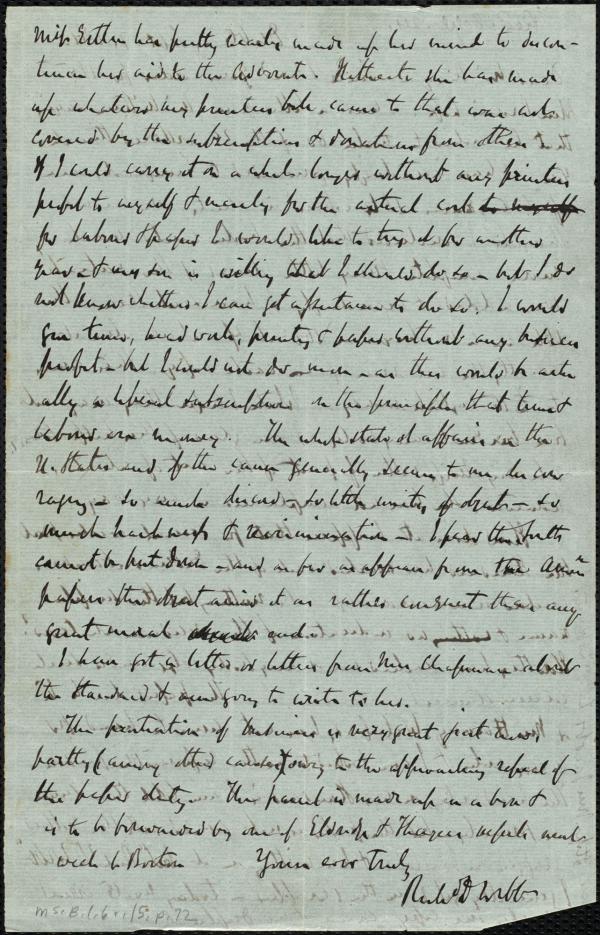 Miss Estlin has pretty nearly made up her mind to discon-
tinue her aid to the Advocate. Hitherto she has made
up whatever my printers bill came to that was not
covered by the subscriptions & donations from others.
If I could carry it on a while longer without any printers
profit to myself & merely for the actual cost to myself
for labour & paper I would like to try it for another
year & my son is willing that I should do so – but I do
not know whether I can get assistance to do so. I would
give time, headwork, printing & paper without any business
profit – but I could not do more – as this would be actu
ally a liberal subscription on the principle that time &
labour are money. The whole state of affairs in the
U. States and of the cause generally seems to me discou
raging – so much discord – so little unity of object – so
much harshness & recrimination – I fear the South
cannot be put down – and as far as appears from the Amern
papers the aimed it as rather conquest than any
great moral end.
I have got a letter or letters from Mrs Chapman about
the Standard & am going to write to her.
The prostration of business is very great just now,
partly (among other causes) owing to the approaching repeal of
the paper duty. The parcel is made up in a box &
is to be forwarded by one of Eldridge & vessels next
week to Boston Yours ever truly
Richd D Webb
Ms. B. 1. 6 v. 15. p. 72